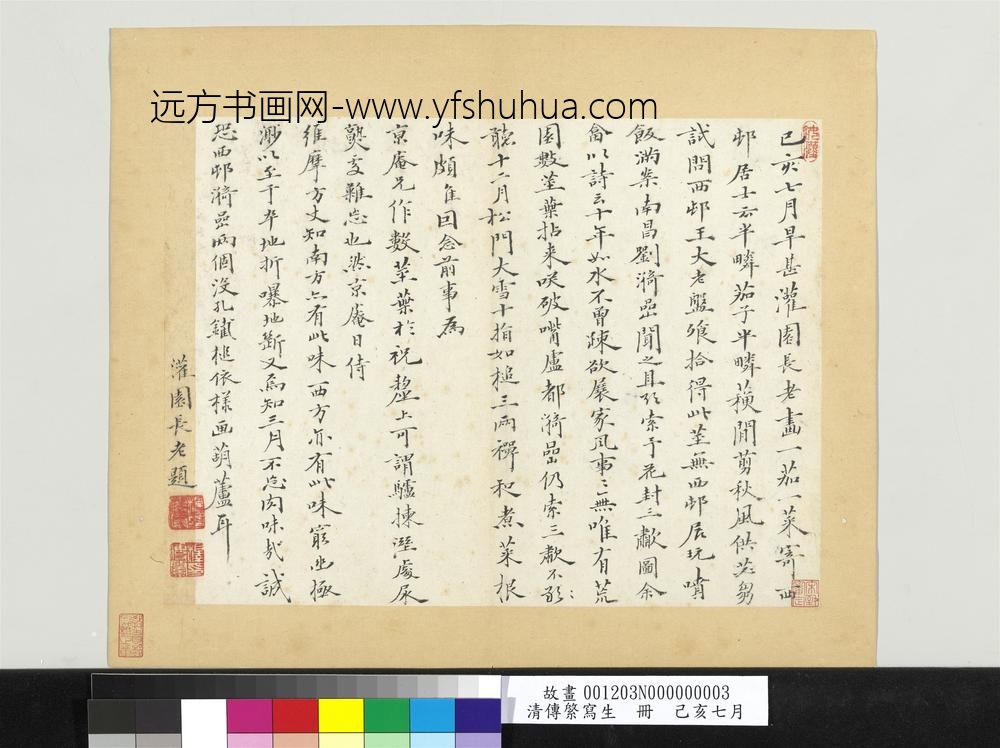 远方书画网-www.yfshuhua.com
己亥七月旱甚灌園長老畵一茄一菜寄西
邨居士云半疄茄子半疄蕻閒剪秋風供苾芻
試問西邨王大老盤飧拾得此莖無西邨居玩噴
飯滿案南昌劉漪嵒聞之且欲索予花封三顱圖余
畣以詩云十年如水不曾疎欲展家風事〻無唯有荒
園數莖葉拈來咲破嘴盧都漪嵒仍索三顱不
聽十二月松門大雪十指如槌三兩禪和煮菜根
味頗隹回念前事為
京庵兄作數莖葉於祝釐上可謂驢揀溼處尿
熟處難忘也然京庵日侍
維摩方丈知南方亦有此味西方亦有此味窮此極
渺以至于平地折曝地斷又焉知三月不忘肉味哉誠
恐西邨漪嵒兩個沒孔鐵槌依樣画葫蘆耳
灌園長老題
故畫 001203N000000003
清傳綮寫生 冊 己亥七月